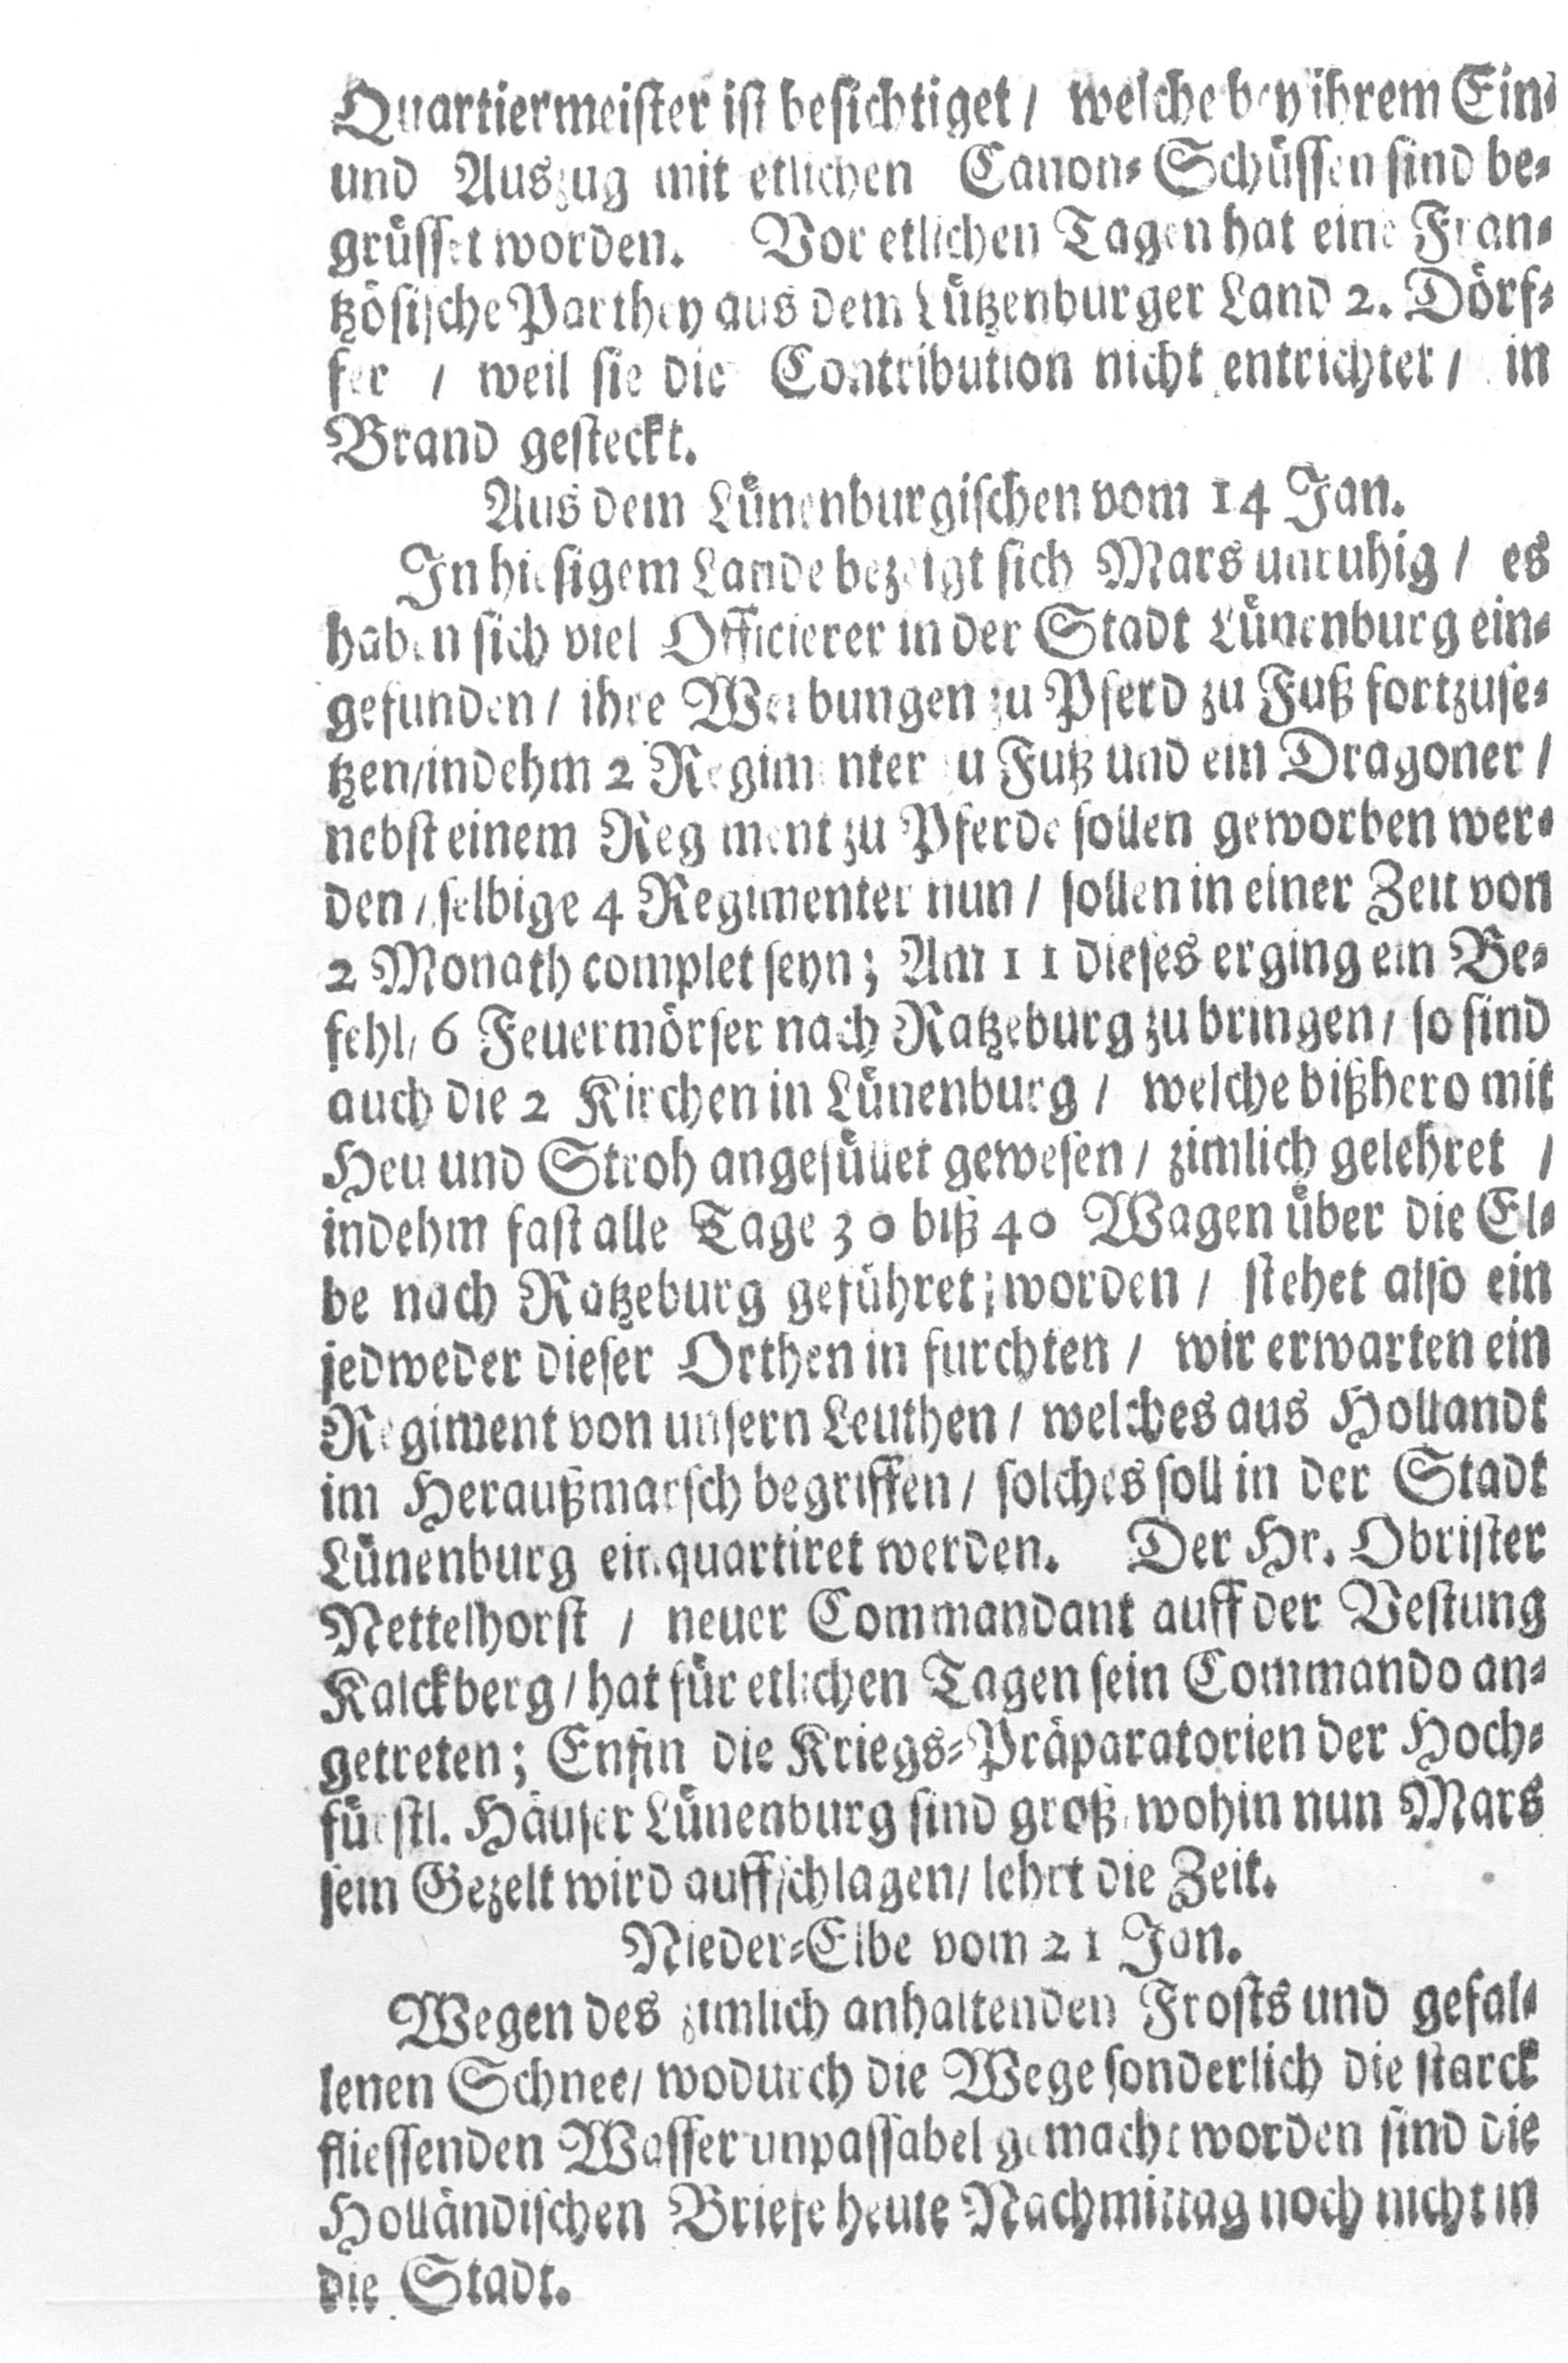 Quartiermeister ist besichtiget / welche bey ihrem Ein-
und Auszug mit etlichen Canon-Schüssen sind be-
grüsset worden. Vor etlichen Tagen hat eine Fran-
tzösische Parthey aus dem Lützenburger Land 2. Dörf-
fer / weil sie die Contribution nicht entrichtet / in
Brand gesteckt.
Aus dem Lünenburgischen vom 14 Jan.
In hiesigem Lande bezeigt sich Mars unruhig / es
haben sich viel Officierer in der Stadt Lünenburg ein-
gefunden / ihre Werbungen zu Pferd zu Fuß fortzuse-
tzen / indehm 2 Regimenter zu Futz und ein Dragoner /
nebst einem Regiment zu Pferde sollen geworben wer-
den / selbige 4 Regimenter nun / sollen in einer Zeit von
2 Monath complet seyn; Am 11 dieses erging ein Be-
fehl / 6 Feuermörser nach Ratzeburg zu bringen / so sind
auch die 2 Kirchen in Lünenburg / welche bißhero mit
Heu und Stroh angefüllet gewesen / zimlich gelehret /
indehm fast alle Tage 30 biß 40 Wagen über die El-
be nach Ratzeburg geführet; worden / stehet also ein
jedweder dieser Orthen in furchten / wir erwarten ein
Regiment von unsern Leuthen / welches aus Hollandt
im Heraußmarsch begriffen / solches soll in der Stadt
Lünenburg einquartiret werden. Der Hr. Obrister
Nettelhorst / neuer Commandant auff der Vestung
Kalckberg / hat für etlichen Tagen sein Commando an-
getreten; Enfin die Kriegs-Präparatorien der Hoch-
fürstl. Häuser Lünenburg sind groß / wohin nun Mars
sein Gezelt wird auffschlagen / lehrt die Zeit.
Nieder-Elbe vom 21 Jan.
Wegen des zimlich anhaltenden Frosts und gefal-
lenen Schnee / wodurch die Wege sonderlich die starck
fliessenden Wasser unpassabel gemacht worden sind die
Holländischen Briefe heute Nachmittag noch nicht in
die Stadt.